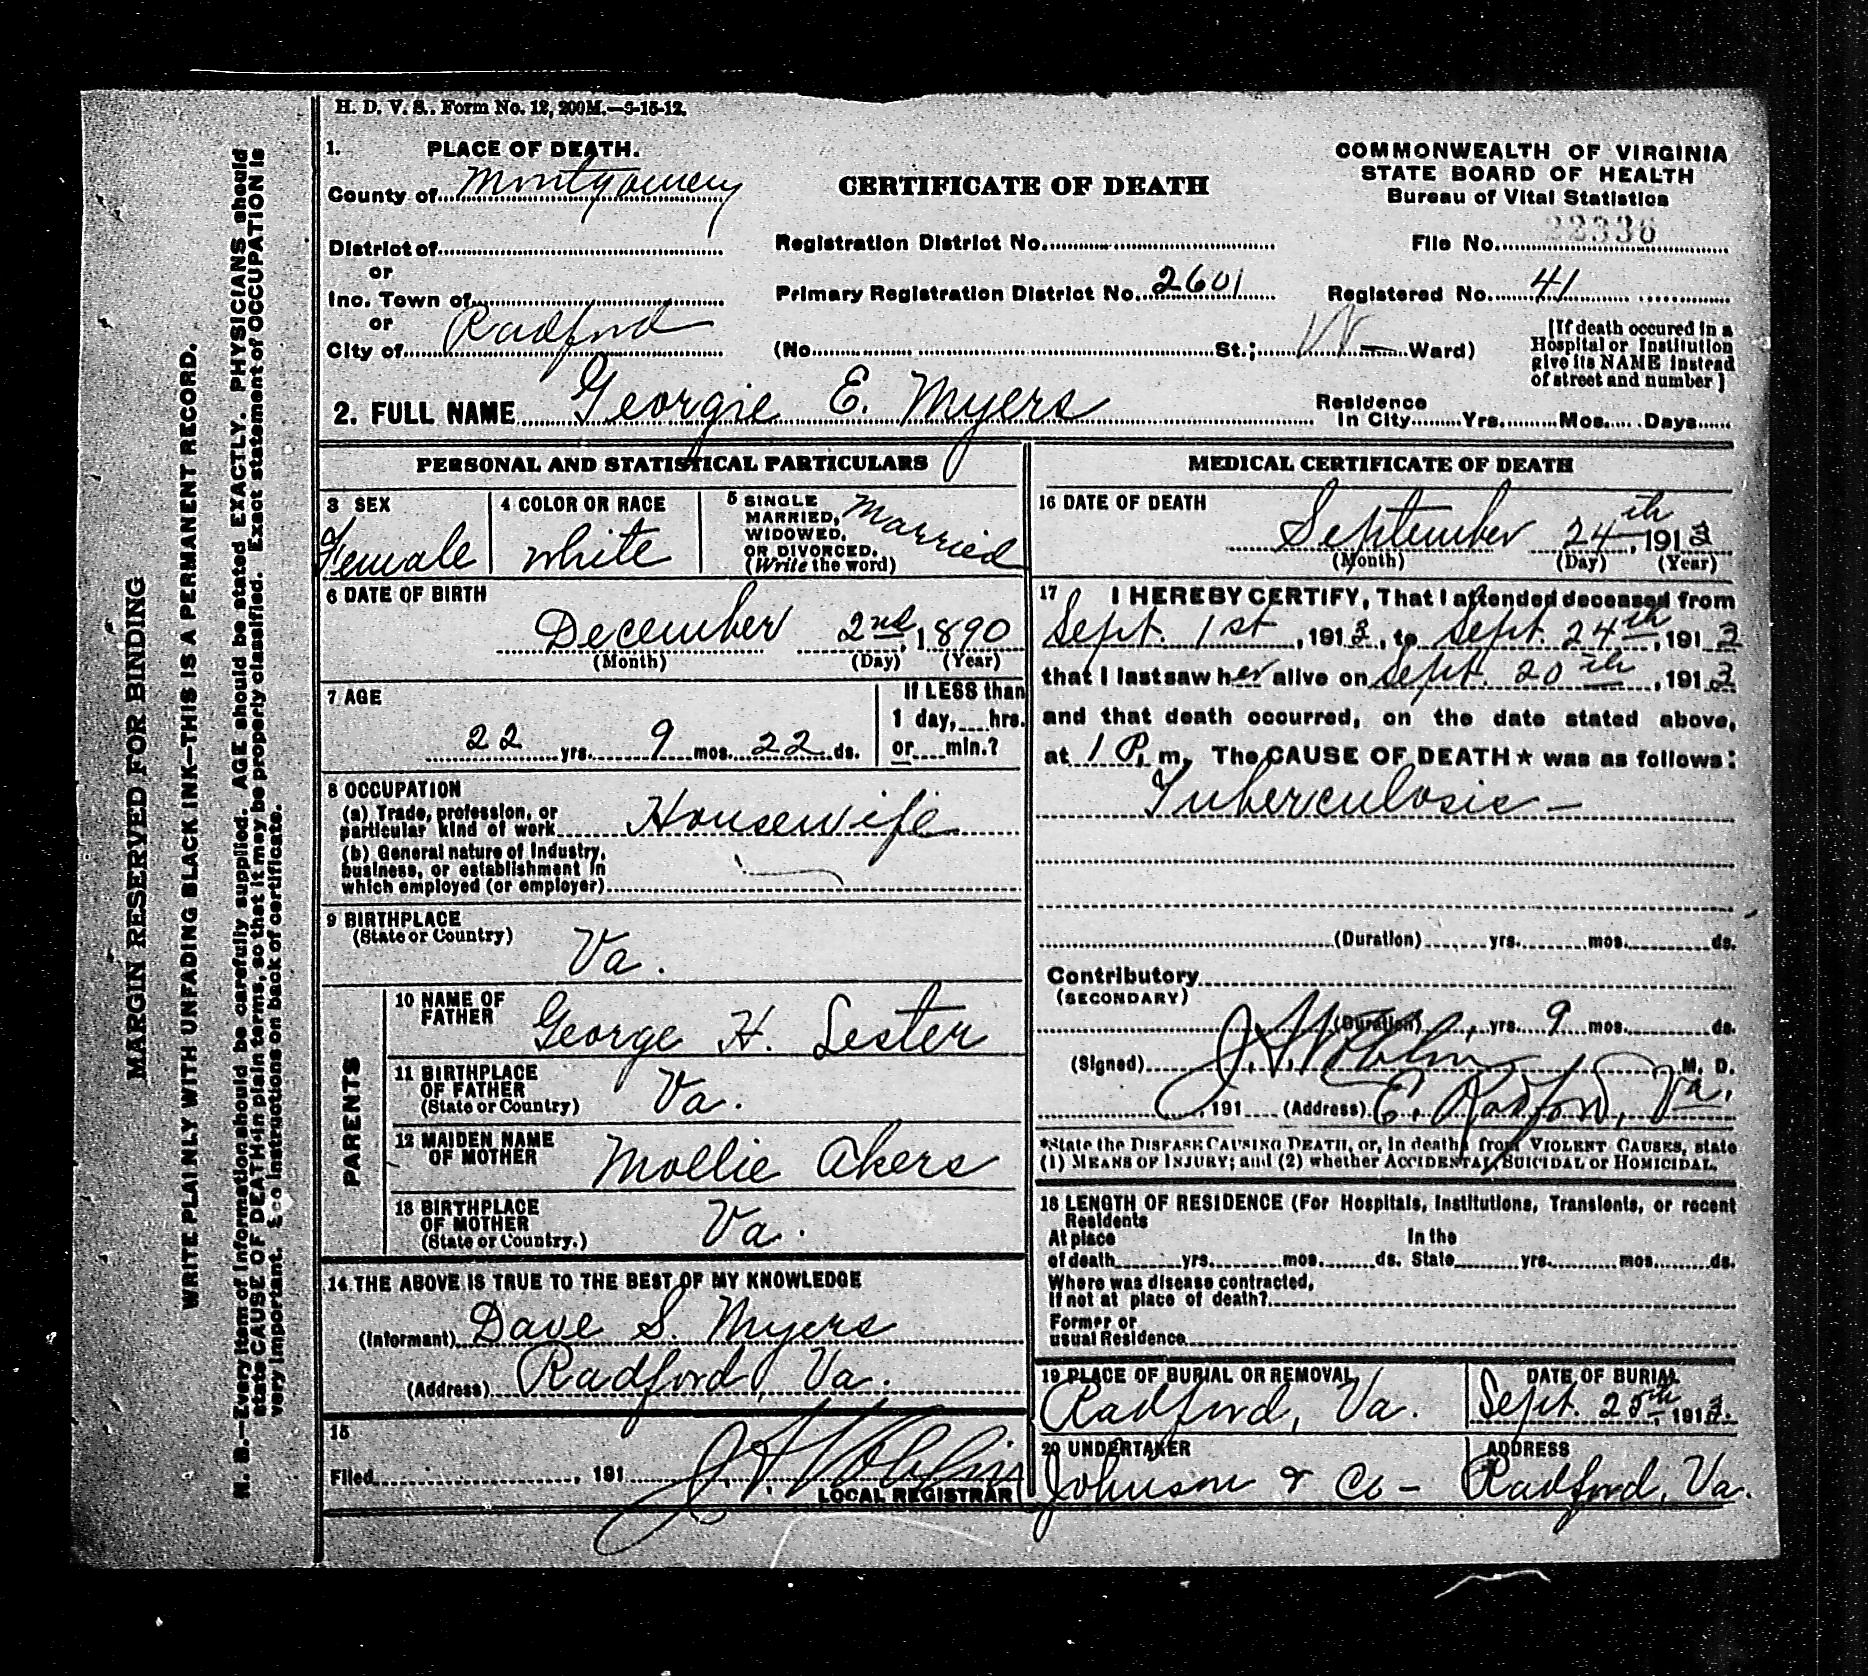 H. D. V. S. Form No. 12, 200M.—5-15-12.
1. PLACE OF DEATH.
County of Montgomery
District of
or
Inc. Town of
or
City of Radford
CERTIFICATE OF DEATH
COMMONWEALTH OF VIRGINIA
STATE BOARD OF HEALTH
Bureau of Vital Statistics
Registration District No.
File No. 22336
Primary Registration District No. 2601
Registered No. 41
(No. St.; W— Ward)
[If death occured in a
Hospital or Institution
give its NAME instead
of street and number]
2. FULL NAME Georgie E. Myers
Residence
In City Yrs. Mos. Days
PERSONAL AND STATISTICAL PARTICULARS
3 SEX
Female
4 COLOR OR RACE
White
5 SINGLE
MARRIED,
WIDOWED,
OR DIVORCED.
(Write the word)
Married
6 DATE OF BIRTH
December 2nd, 1890
(Month) (Day) (Year)
7 AGE
22 yrs. 9 mos. 22 ds.
If LESS than
1 day, hrs.
or min.?
8 OCCUPATION
(a) Trade, profession, or
particular kind of work Housewife
(b) General nature of Industry,
business, or establishment in
which employed (or employer)
9 BIRTHPLACE
(State or Country)
Va.
PARENTS
10 NAME OF
FATHER
George H. Lester
11 BIRTHPLACE
OF FATHER
(State or Country)
Va.
12 MAIDEN NAME
OF MOTHER
Mollie Akers
13 BIRTHPLACE
OF MOTHER
(State or Country.)
Va.
14 THE ABOVE IS TRUE TO THE BEST OF MY KNOWLEDGE
(Informant) Dave S. Myers
(Address) Radford, Va.
15
Filed , 191
LOCAL REGISTRAR
MEDICAL CERTIFICATE OF DEATH
16 DATE OF DEATH
September 24th, 1913
(Month) (Day) (Year)
17 I HEREBY CERTIFY, That I attended deceased from
Sept. 1st, 1913, to Sept. 24th, 1913
that I last saw her alive on Sept. 20th, 1913
and that death occurred, on the date stated above,
at 1 P. m. The CAUSE OF DEATH★ was as follows:
Tuberculosis—
(Duration) yrs. mos. ds.
Contributory
(SECONDARY)
(Duration) yrs. 9 mos. ds.
(Signed) M. D.
, 191 (Address) E. Radford, Va.
*State the DISEASE CAUSING DEATH, or, in deaths from VIOLENT CAUSES, state
(1) MEANS OF INJURY; and (2) whether ACCIDENTAL, SUICIDAL or HOMICIDAL.
18 LENGTH OF RESIDENCE (For Hospitals, Institutions, Transients, or recent
Residents
At place In the
of death yrs. mos. ds. State yrs. mos. ds.
Where was disease contracted,
If not at place of death?
Former or
usual Residence
19 PLACE OF BURIAL OR REMOVAL
Radford, Va.
DATE OF BURIAL
Sept. 25th, 1913.
20 UNDERTAKER
Johnson & Co—
ADDRESS
Radford, Va.
MARGIN RESERVED FOR BINDING
WRITE PLAINLY WITH UNFADING BLACK INK—THIS IS A PERMANENT RECORD.
N. B.—Every item of information should be carefully supplied. AGE should be stated EXACTLY. PHYSICIANS should
state CAUSE OF DEATH in plain terms, so that it may be properly classified. Exact statement of OCCUPATION is
very important. See instructions on back of certificate.